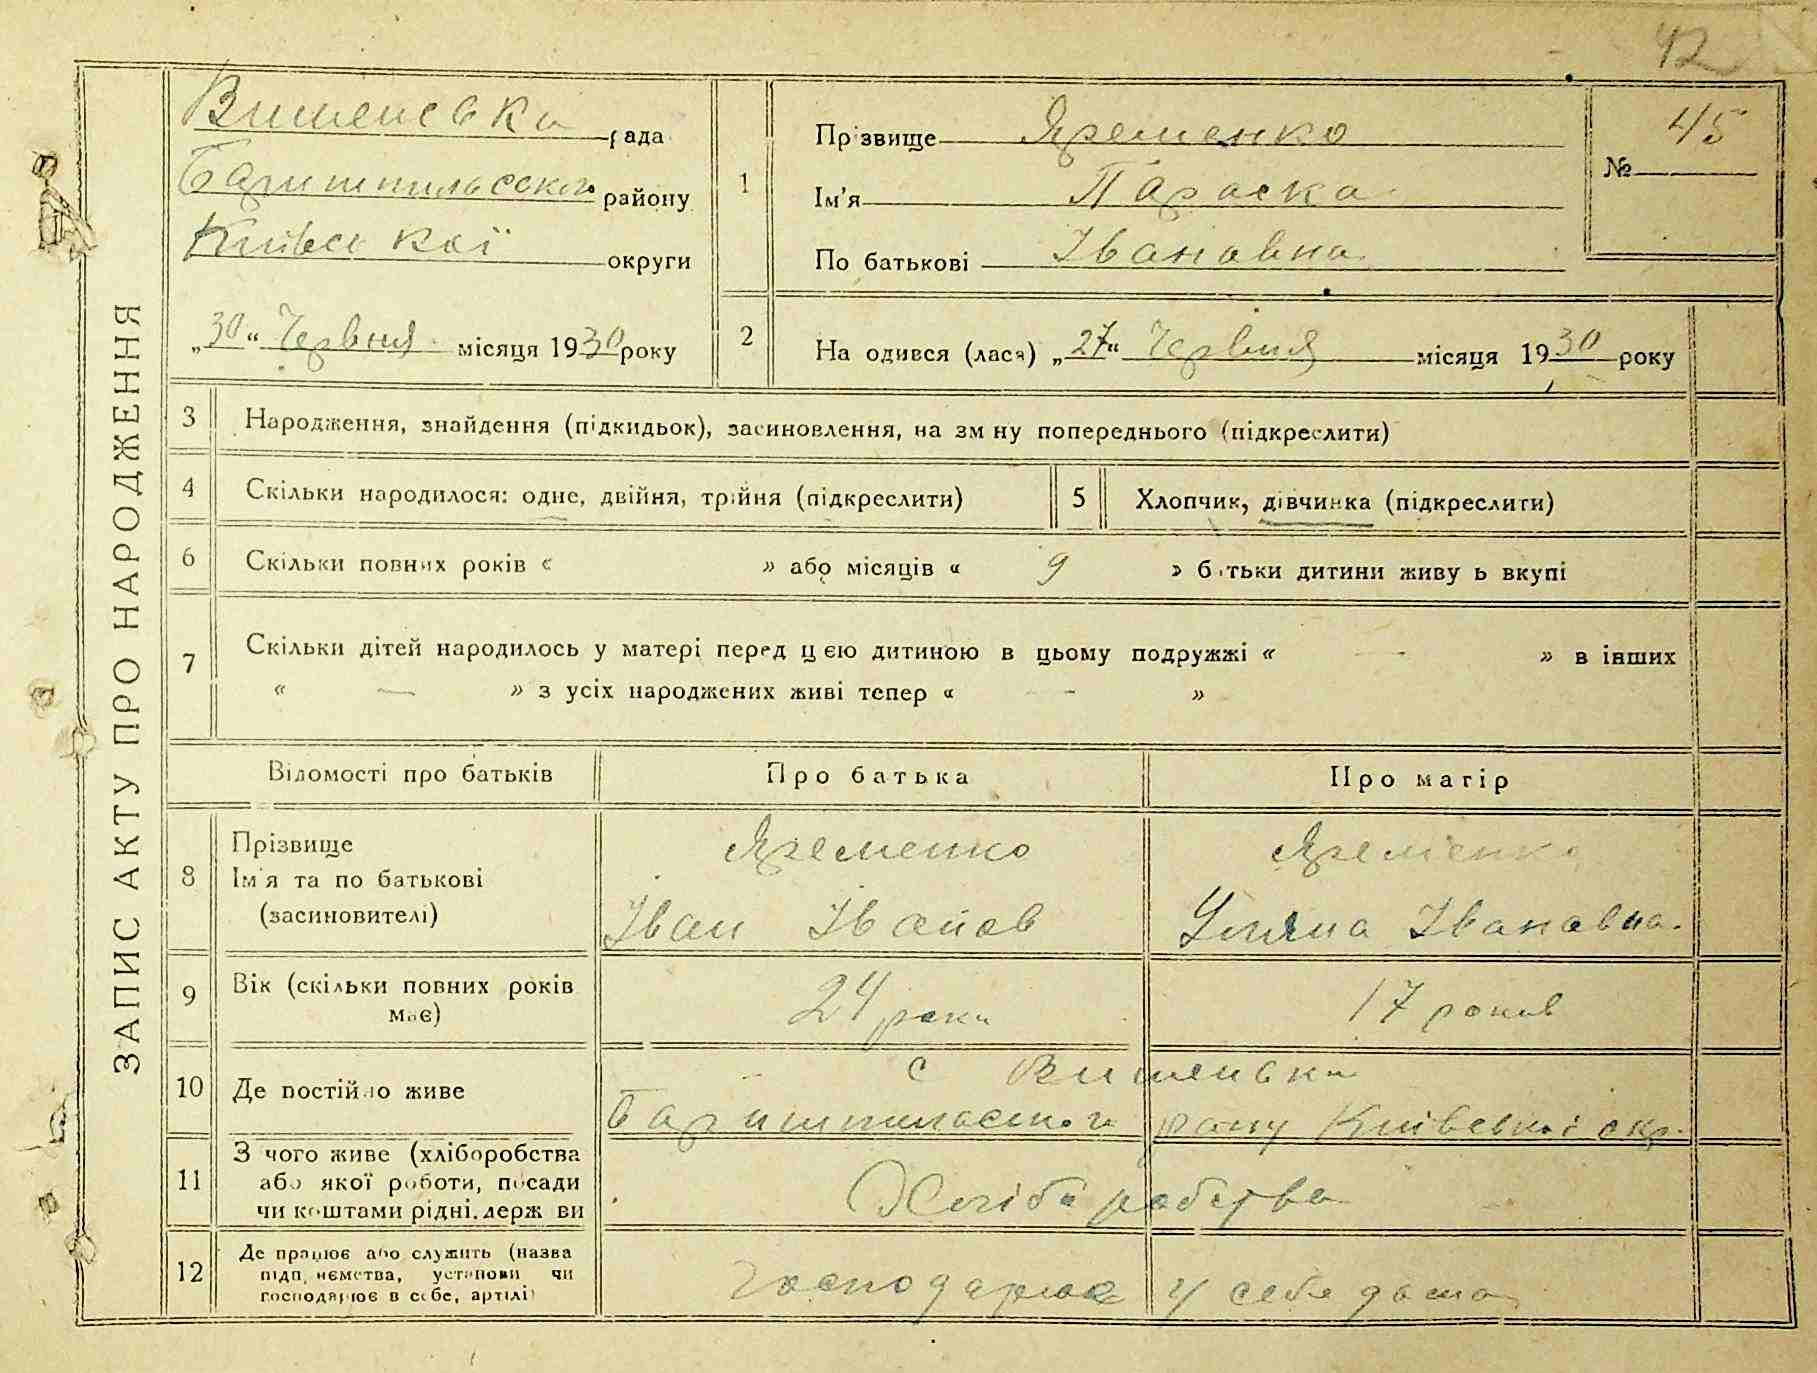 42
ЗАПИС АКТУ ПРО НАРОДЖЕННЯ
Вишенська рада
Баришпильского району
Київської округи
„30“ Червня місяця 1930 року
1
Прізвище Яременко
Ім'я Параска
По батькові Івановна
№ 45
2
На одився (лася) „27“ Червня місяця 1930 року
3 Народження, знайдення (підкидьок), засиновлення, на зм ну попереднього (підкреслити)
4 Скільки народилося: одне, двійня, трійня (підкреслити)
5 Хлопчик, дівчинка (підкреслити)
6 Скільки повних років « » або місяців « 9 » б тьки дитини живу ь вкупі
7 Скільки дітей народилось у матері перед цією дитиною в цьому подружжі « — » в інших
« — » з усіх народжених живі тепер « — »
Відомості про батьків Про батька Про матір
8 Прізвище
Ім'я та по батькові
(засиновителі)
Яременко
Іван Іванов
Яременко
Уляна Івановна.
9 Вік (скільки повних років
має)
24 роки
17 років
10 Де постійно живе
с Вишеньки
Баришпильского рану Київської окр.
11 З чого живе (хліборобства
або якої роботи, посади
чи коштами рідні, держ ви
Хліборобства
12 Де працює або служить (назва
підп иємства, установи чи
господарює в себе, артілі)
Господарює у себе дома